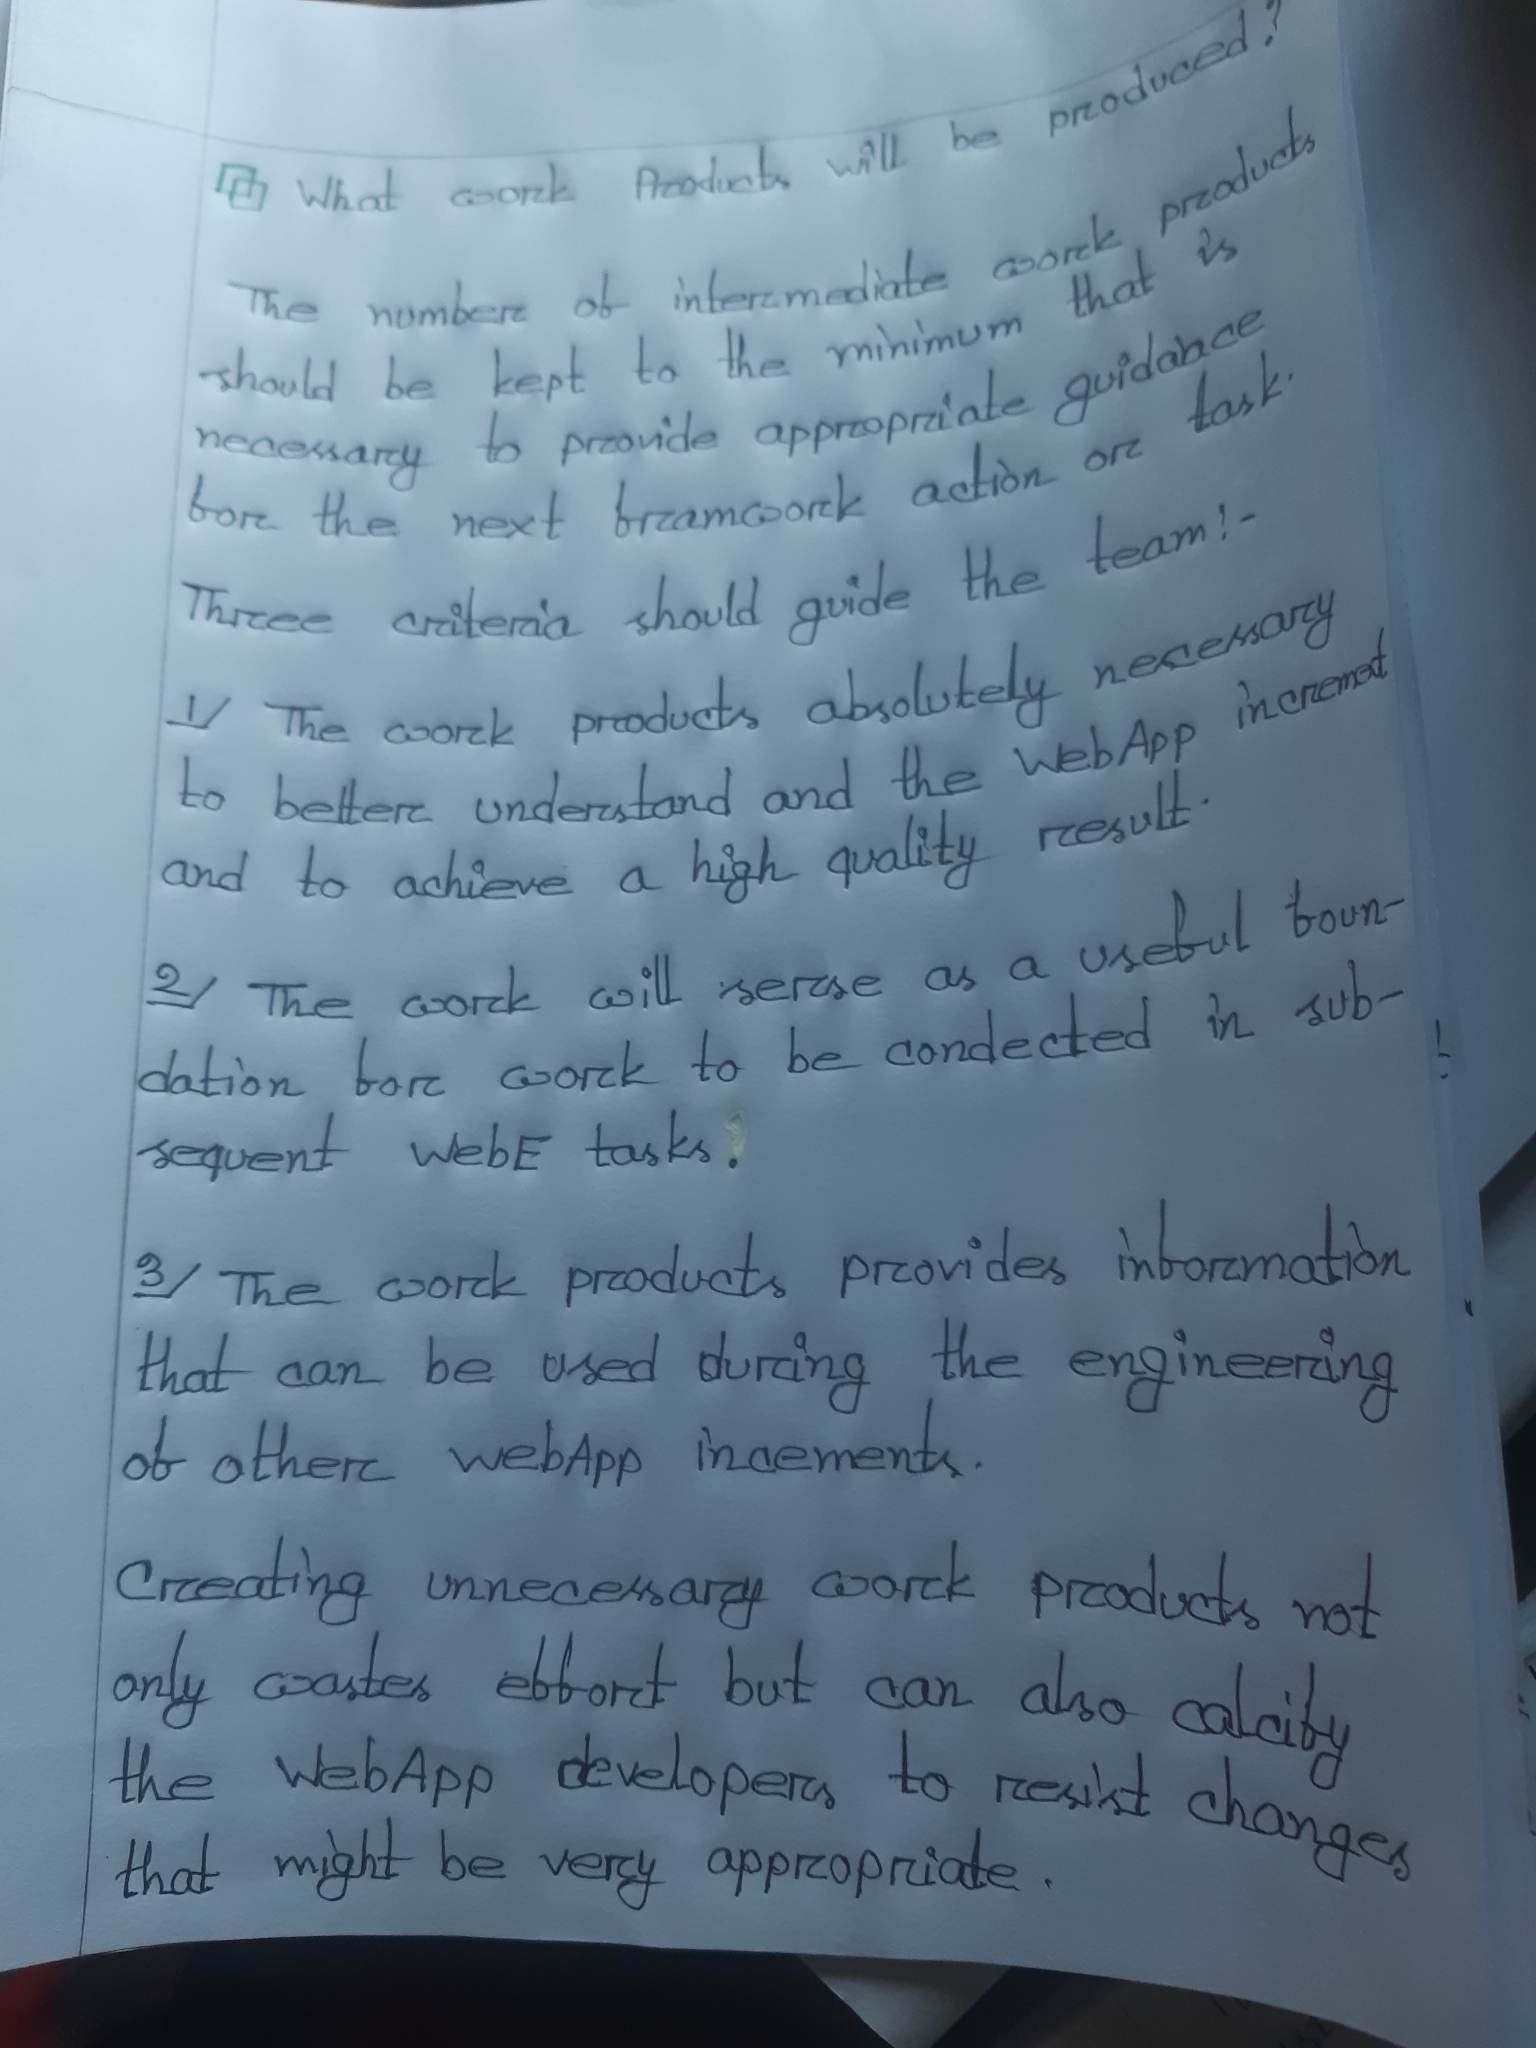 What work Products will be produced?
The number of intermediate work products
should be kept to the minimum that is
necessary to provide appropriate guidance
for the next framwork action or task.
Three criteria should guide the team:-
1/ The work products absolutely necessary
to better understand and the WebApp incremet
and to achieve a high quality result.
2/ The work will serse as a useful foun-
dation for work to be condected in sub-
sequent WebE tasks.
3/ The work products provides information
that can be used during the engineering
of other WebApp incements.
Creating unnecessary work products not
only wastes effort but can also calcify
the WebApp developers to resist changes
that might be very appropriate.